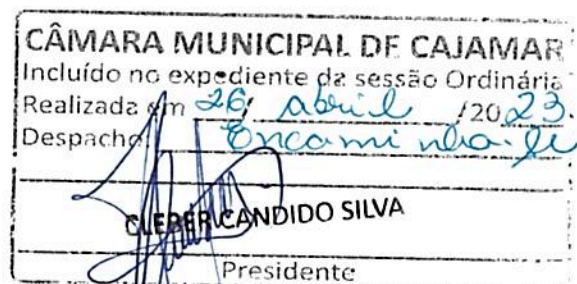 CÂMARA MUNICIPAL DE CAJAMAR
Incluído no expediente da sessão Ordinária
Realizada em 26/ abril /2023.
Despacho: Encaminha-se
CLEBER CANDIDO SILVA
Presidente